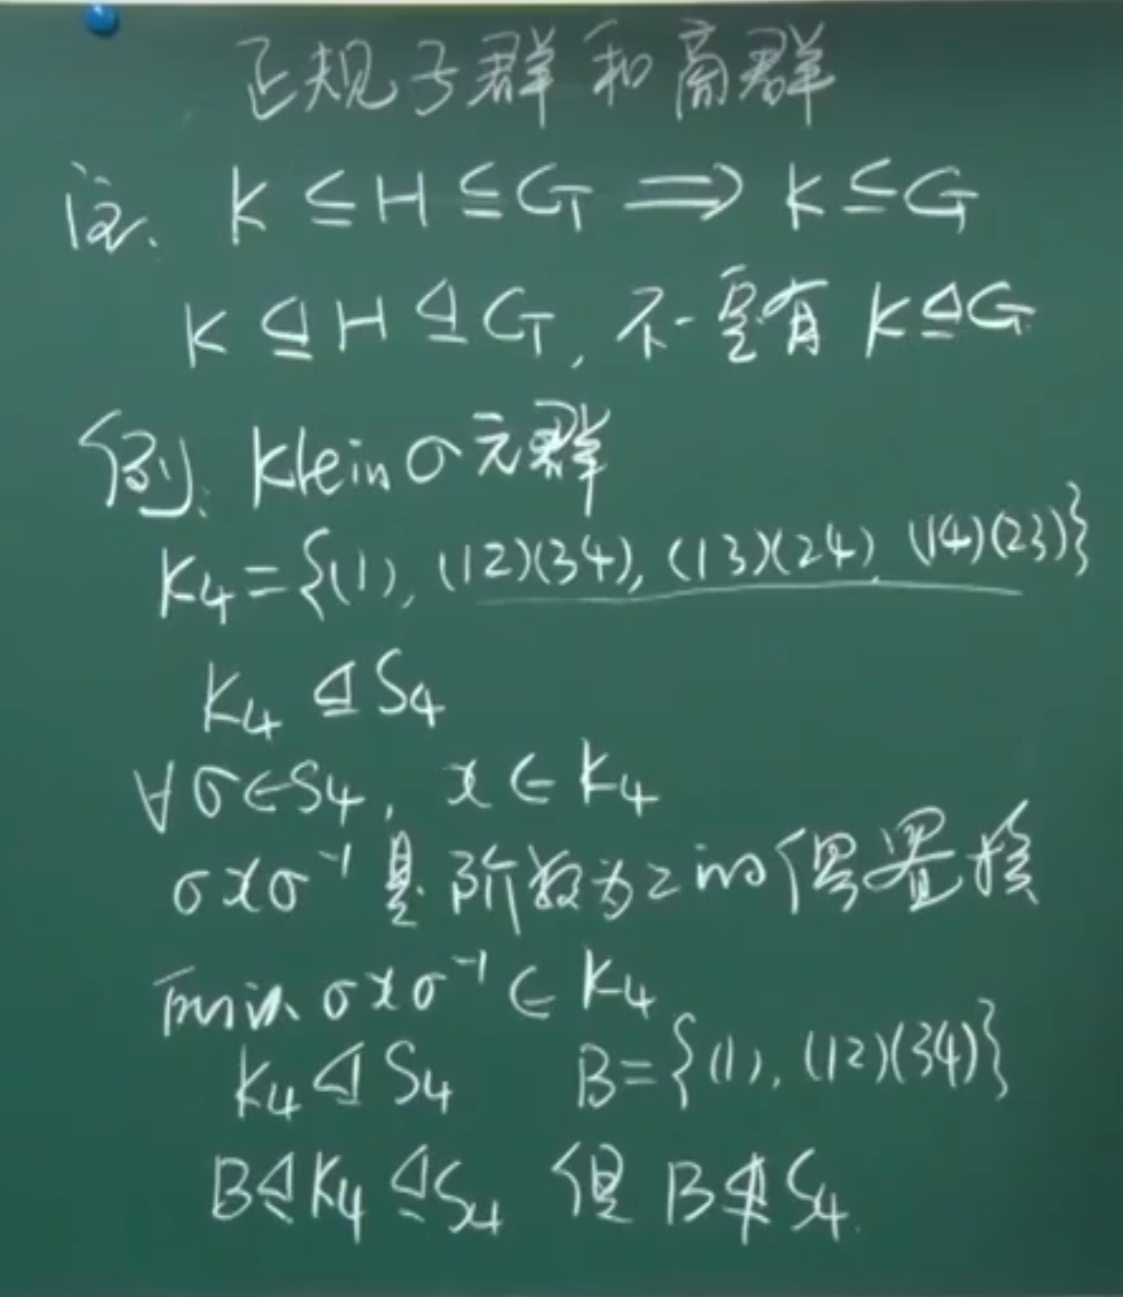 正规子群和商群
注. K ≤ H ≤ G ⟹ K ≤ G
K ⊴ H ⊴ G, 不一定有 K ⊴ G
例. Klein 四元群
K₄ = {(1), (12)(34), (13)(24), (14)(23)}
K₄ ⊴ S₄
∀σ∈S₄, x∈K₄
σxσ⁻¹ 是阶数为2的偶置换
所以 σxσ⁻¹ ∈ K₄
K₄ ⊲ S₄ B = {(1), (12)(34)}
B ⊴ K₄ ⊴ S₄ 但 B ⋬ S₄.